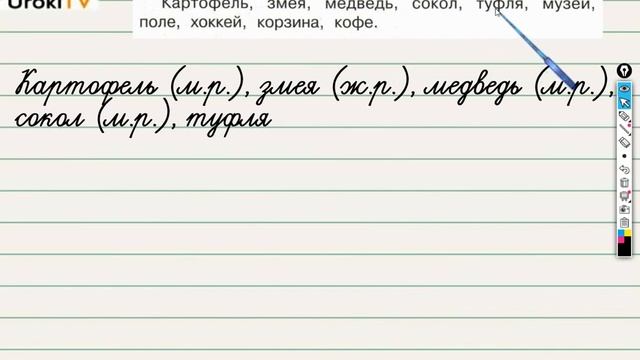 UrokiTV
Картофель, змея, медведь, сокол, туфля, музей,
поле, хоккей, корзина, кофе.
Картофель (м.р.), змея (ж.р.), медведь (м.р.),
сокол (м.р.), туфля